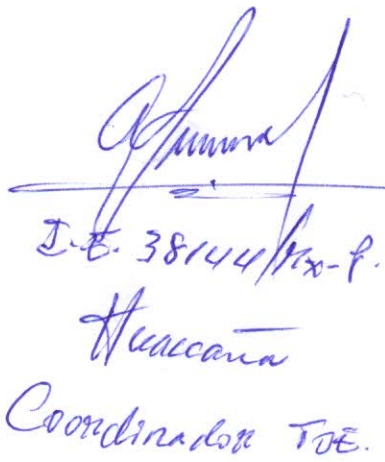 I.E. 38144/Mx-P.
Huaccaña
Coordinador TOE.